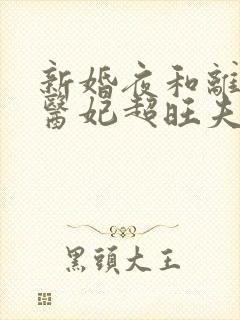 新婚夜和離
醫妃超旺夫
黑頭大王